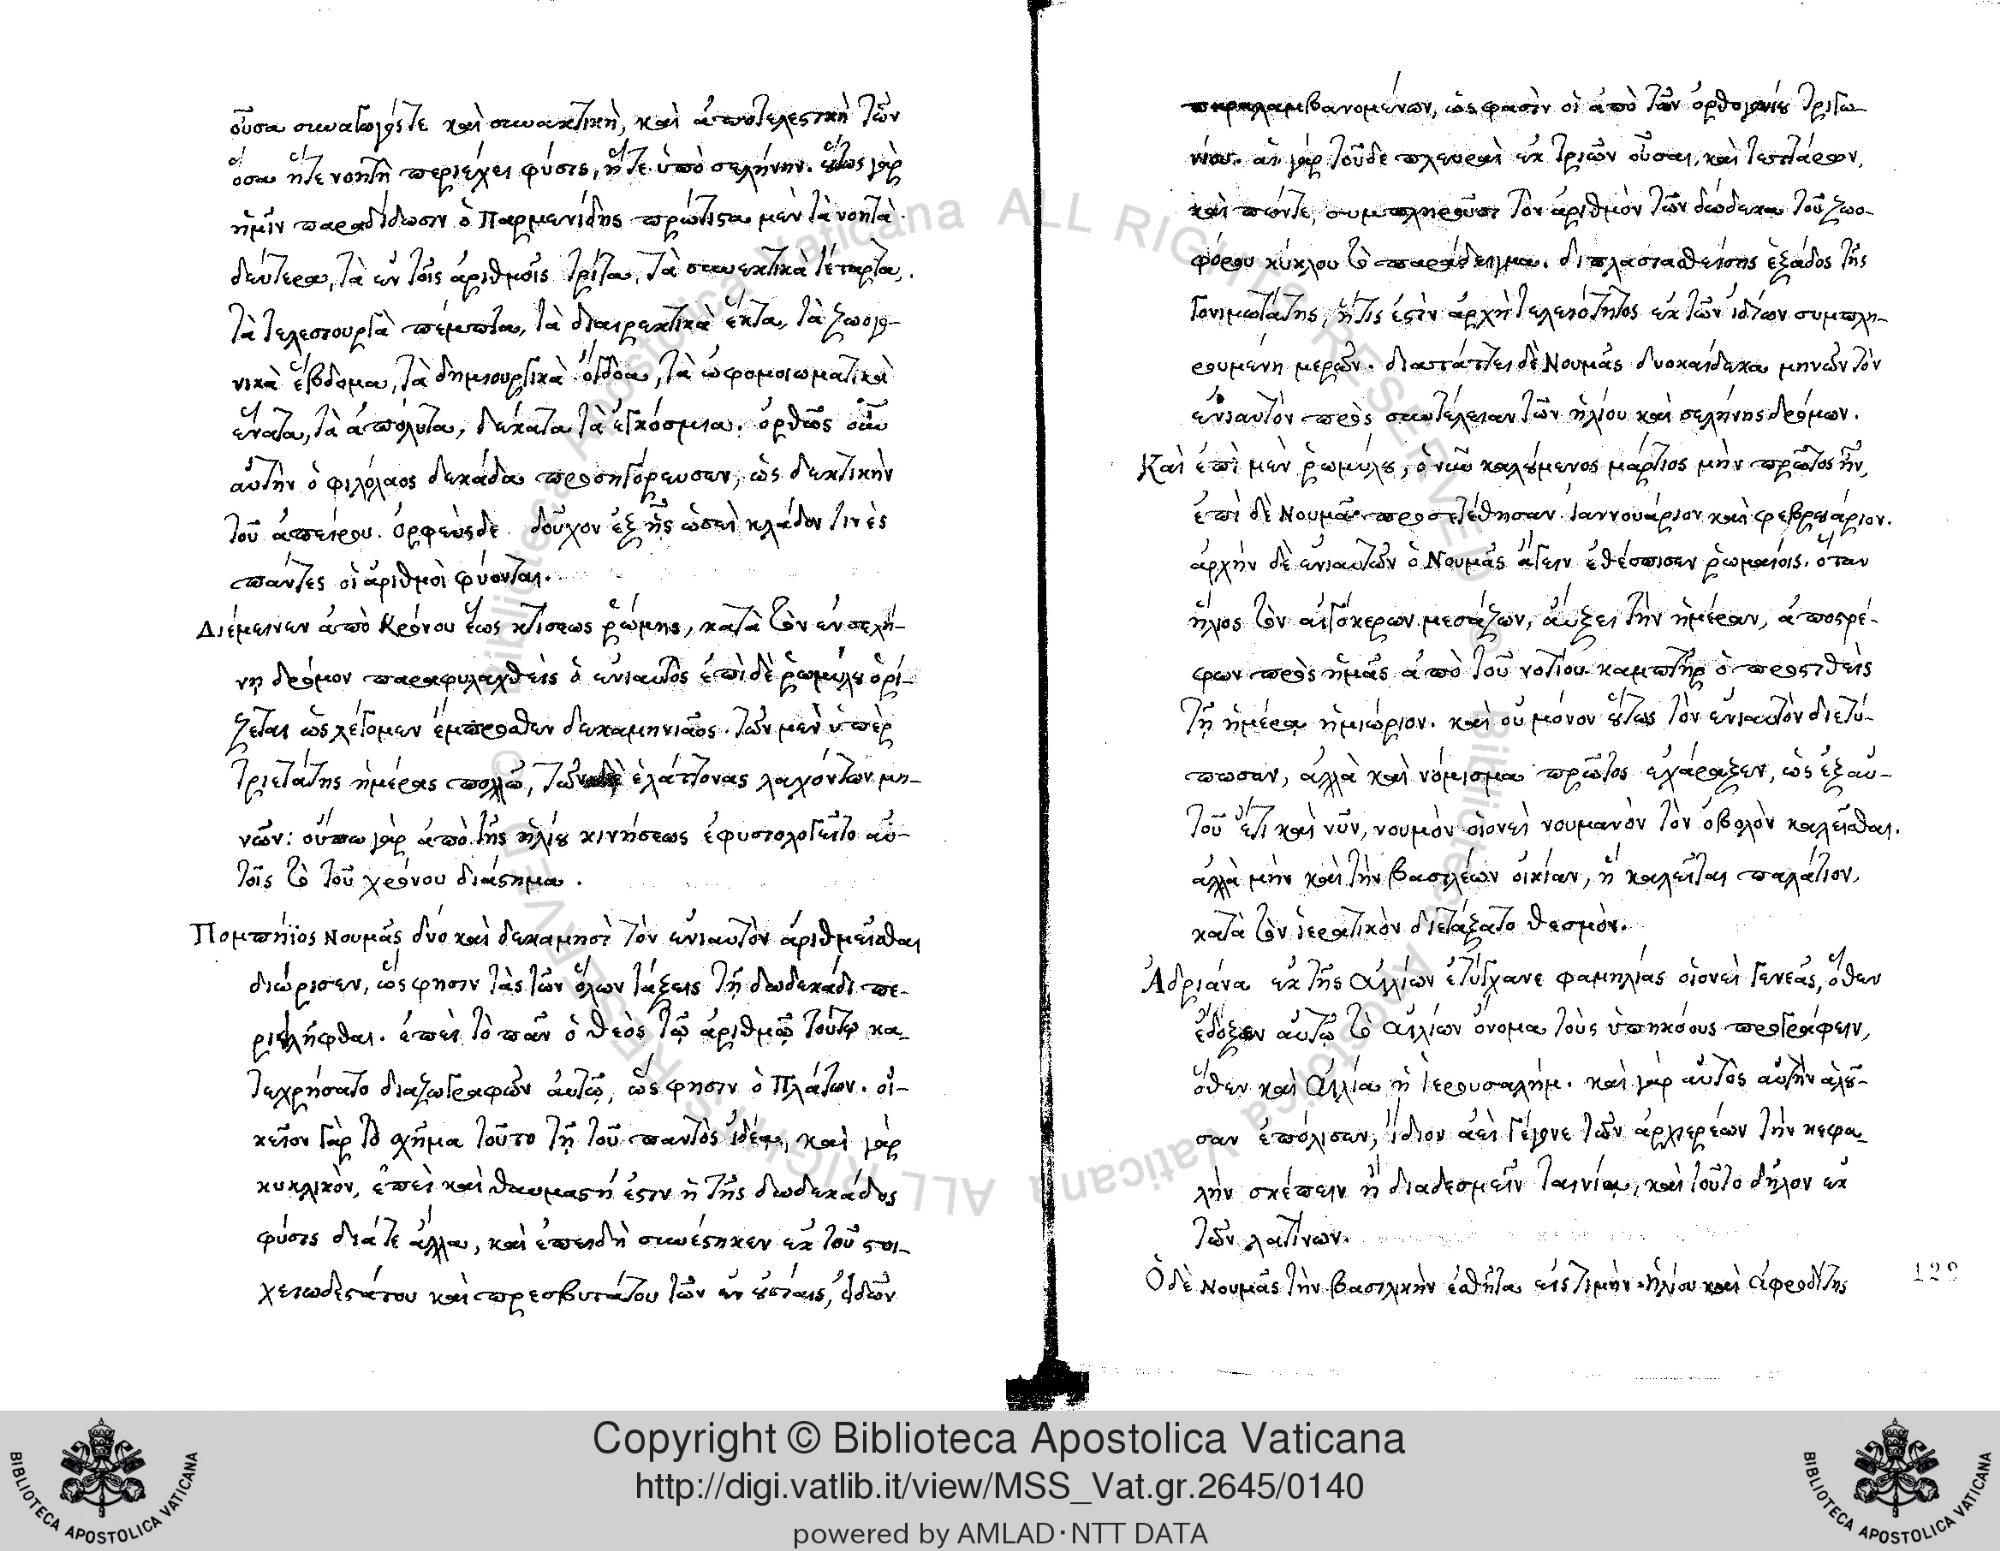 οὖσα συναγωγός τε καὶ συνεκτικὴ, καὶ ἀποτελεστικὴ τῶν
ὅσα ἥτε νοητὴ περιέχει φύσις, ἥτε ὑπὸ σελήνην. οὕτως γὰρ
ἡμῖν παραδίδωσιν ὁ Παρμενίδης πρώτιστα μὲν τὰ νοητὰ.
δεύτερα, τὰ ἐν τοῖς ἀριθμοῖς τρίτα, τὰ συνεκτικὰ τέταρτα,
τὰ τελεσιουργὰ πέμπτα, τὰ διαιρεκτικὰ ἕκτα, τὰ ζωογο-
νικὰ ἕβδομα, τὰ δημιουργικὰ ὄγδοα, τὰ ἀφομοιωματικὰ
ἔνατα, τὰ ἀπόλυτα, δέκατα τὰ ἐγκόσμια. ὀρθῶς οὖν
αὐτὴν ὁ φιλόλαος δεκάδα προσηγόρευσεν, ὡς δεκτικὴν
τοῦ ἀπείρου. ὀρφεὺς δὲ δοῦχον ἐξ ἧς ὡσεὶ κλάδοι τινὲς
πάντες οἱ ἀριθμοὶ φύονται.
Διέμεινεν ἀπὸ Κρόνου ἕως κτίσεως ῥώμης, κατὰ τὸν ἐν σελή-
νῃ δρόμον παραφυλαχθεὶς ὁ ἐνιαυτὸς ἐπὶ δὲ ῥωμύλου ὁρί-
ζεται ὡς λέγομεν ἔμπροσθεν δεκαμηνιαῖος. τῶν μὲν ὑπὲρ
τριετάτης ἡμέρας πολλῶ, τῶν δὲ ἐλάττονας λαχόντων μη-
νῶν: οὔπω γὰρ ἀπὸ τῆς ἡλίου κινήσεως ἐφυσιολογεῖτο αὐ-
τοῖς τὸ τοῦ χρόνου διάστημα.
Πομπήϊος Νουμᾶς δύο καὶ δεκαμησὶ τὸν ἐνιαυτὸν ἀριθμεῖσθαι
διώρισεν, ὥς φησιν τὰς τῶν ὅλων τάξεις τῇ δωδεκάδι πε-
ριειλῆφθαι. ἐπεὶ τὸ πᾶν ὁ θεὸς τῷ ἀριθμῷ τούτῳ κα-
τεχρήσατο διαζωγραφῶν αὐτῷ, ὥς φησιν ὁ Πλάτων. οἰ-
κεῖον γὰρ τὸ σχῆμα τοῦτο τῇ τοῦ παντὸς ἰδέᾳ, καὶ γὰρ
κυκλικὸν, ἐπεὶ καὶ θαυμαστή ἐστιν ἡ τῆς δωδεκάδος
φύσις διά τε ἄλλα, καὶ ἐπειδὴ συνέστηκεν ἐκ τοῦ στοι-
χειωδεστάτου καὶ πρεσβυτάτου τῶν ἐν οὐσίαις, εἰδῶν
παραλαμβανομένων, ὡς φασὶν οἱ ἀπὸ τῶν ὀρθογωνίου τριγω-
νίου. αἱ γὰρ τοῦδε πλευραὶ ἐκ τριῶν οὖσαι, καὶ τεσσάρων,
καὶ πέντε, συμπληροῦσι τὸν ἀριθμὸν τῶν δώδεκα τοῦ ζωο-
φόρου κύκλου τὸ παράδειγμα. διπλασιασθείσης ἑξάδος τῆς
γονιμωτάτης, ἥτις ἐστὶν ἀρχὴ τελειότητος ἐκ τῶν ἰδίων συμπλη-
ρουμένη μερῶν. διατάττει δὲ Νουμᾶς δυοκαίδεκα μηνῶν τὸν
ἐνιαυτὸν πρὸς συντέλειαν τῶν ἡλίου καὶ σελήνης δρόμων.
Καὶ ἐπὶ μὲν ῥωμύλου, ὁ νῦν καλούμενος μάρτιος μὴν πρῶτος ἦν,
ἐπὶ δὲ Νουμᾶ προσετέθησαν ἰαννουάριον καὶ φεβρουάριον.
ἀρχὴν δὲ ἐνιαυτῶν ὁ Νουμᾶς ἄγειν ἐθέσπισεν ῥωμαίοις. ὅταν
ἥλιος τὸν αἰγόκερων μεσάζων, αὔξει τὴν ἡμέραν, ἀποστρέ-
φων πρὸς ἡμᾶς ἀπὸ τοῦ νοτίου καμπτῆρ ὁ προστιθεὶς
τῇ ἡμέρᾳ ἡμιώριον. καὶ οὐ μόνον οὕτως τὸν ἐνιαυτὸν διετύ-
πωσεν, ἀλλὰ καὶ νόμισμα πρῶτος ἐχάραξεν, ὡς ἐξ αὐ-
τοῦ ἔτι καὶ νῦν, νουμὸν οἱονεὶ νουμανὸν τὸν ὀβολὸν καλεῖσθαι.
ἀλλὰ μὴν καὶ τὴν βασιλέων οἰκίαν, ἣ καλεῖται παλάτιον,
κατὰ τὸν ἱερατικὸν διετάξατο θεσμὸν.
Ἀδριάνα ἐκ τῆς Αἰλίων ἐτύγχανε φαμηλίας οἱονεὶ γενεᾶς, ὅθεν
ἔδοξεν αὐτῷ τὸ Αἰλίων ὄνομα τοὺς ὑπηκόους προγράφειν,
ὅθεν καὶ Αἰλία ἡ Ἱερουσαλήμ. καὶ γὰρ αὐτὸς αὐτὴν ἁλοῦ-
σαν ἐπόλισεν, ἴδιον ἀεὶ γέγονε τῶν ἀρχιερέων τὴν κεφα-
λὴν σκέπειν ἢ διαδεσμεῖν ταινίᾳ, καὶ τοῦτο δῆλον ἐκ
τῶν λατίνων.
Ὁ δὲ Νουμᾶς τὴν βασιλικὴν ἐσθῆτα εἰς τιμὴν ἡλίου καὶ ἀφροδίτης
129
Copyright © Biblioteca Apostolica Vaticana
http://digi.vatlib.it/view/MSS_Vat.gr.2645/0140
powered by AMLAD·NTT DATA
BIBLIOTECA APOSTOLICA VATICANA
BIBLIOTECA APOSTOLICA VATICANA